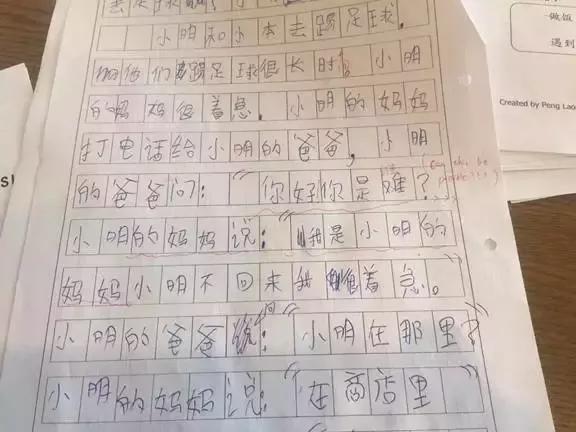 小明和小本去踢足球。
他们踢足球很长时 小明
的妈妈很着急。小明的妈妈
打电话给小明的爸爸，小明
的爸爸问：“你好你是难？
小明的妈妈说：“我是小明的
妈妈小明不回来我很着急。”
小明的爸爸说：“小明在那里？”
问
小明的妈妈说：“在商店里
做饭
遇到
Created by Peng Lao